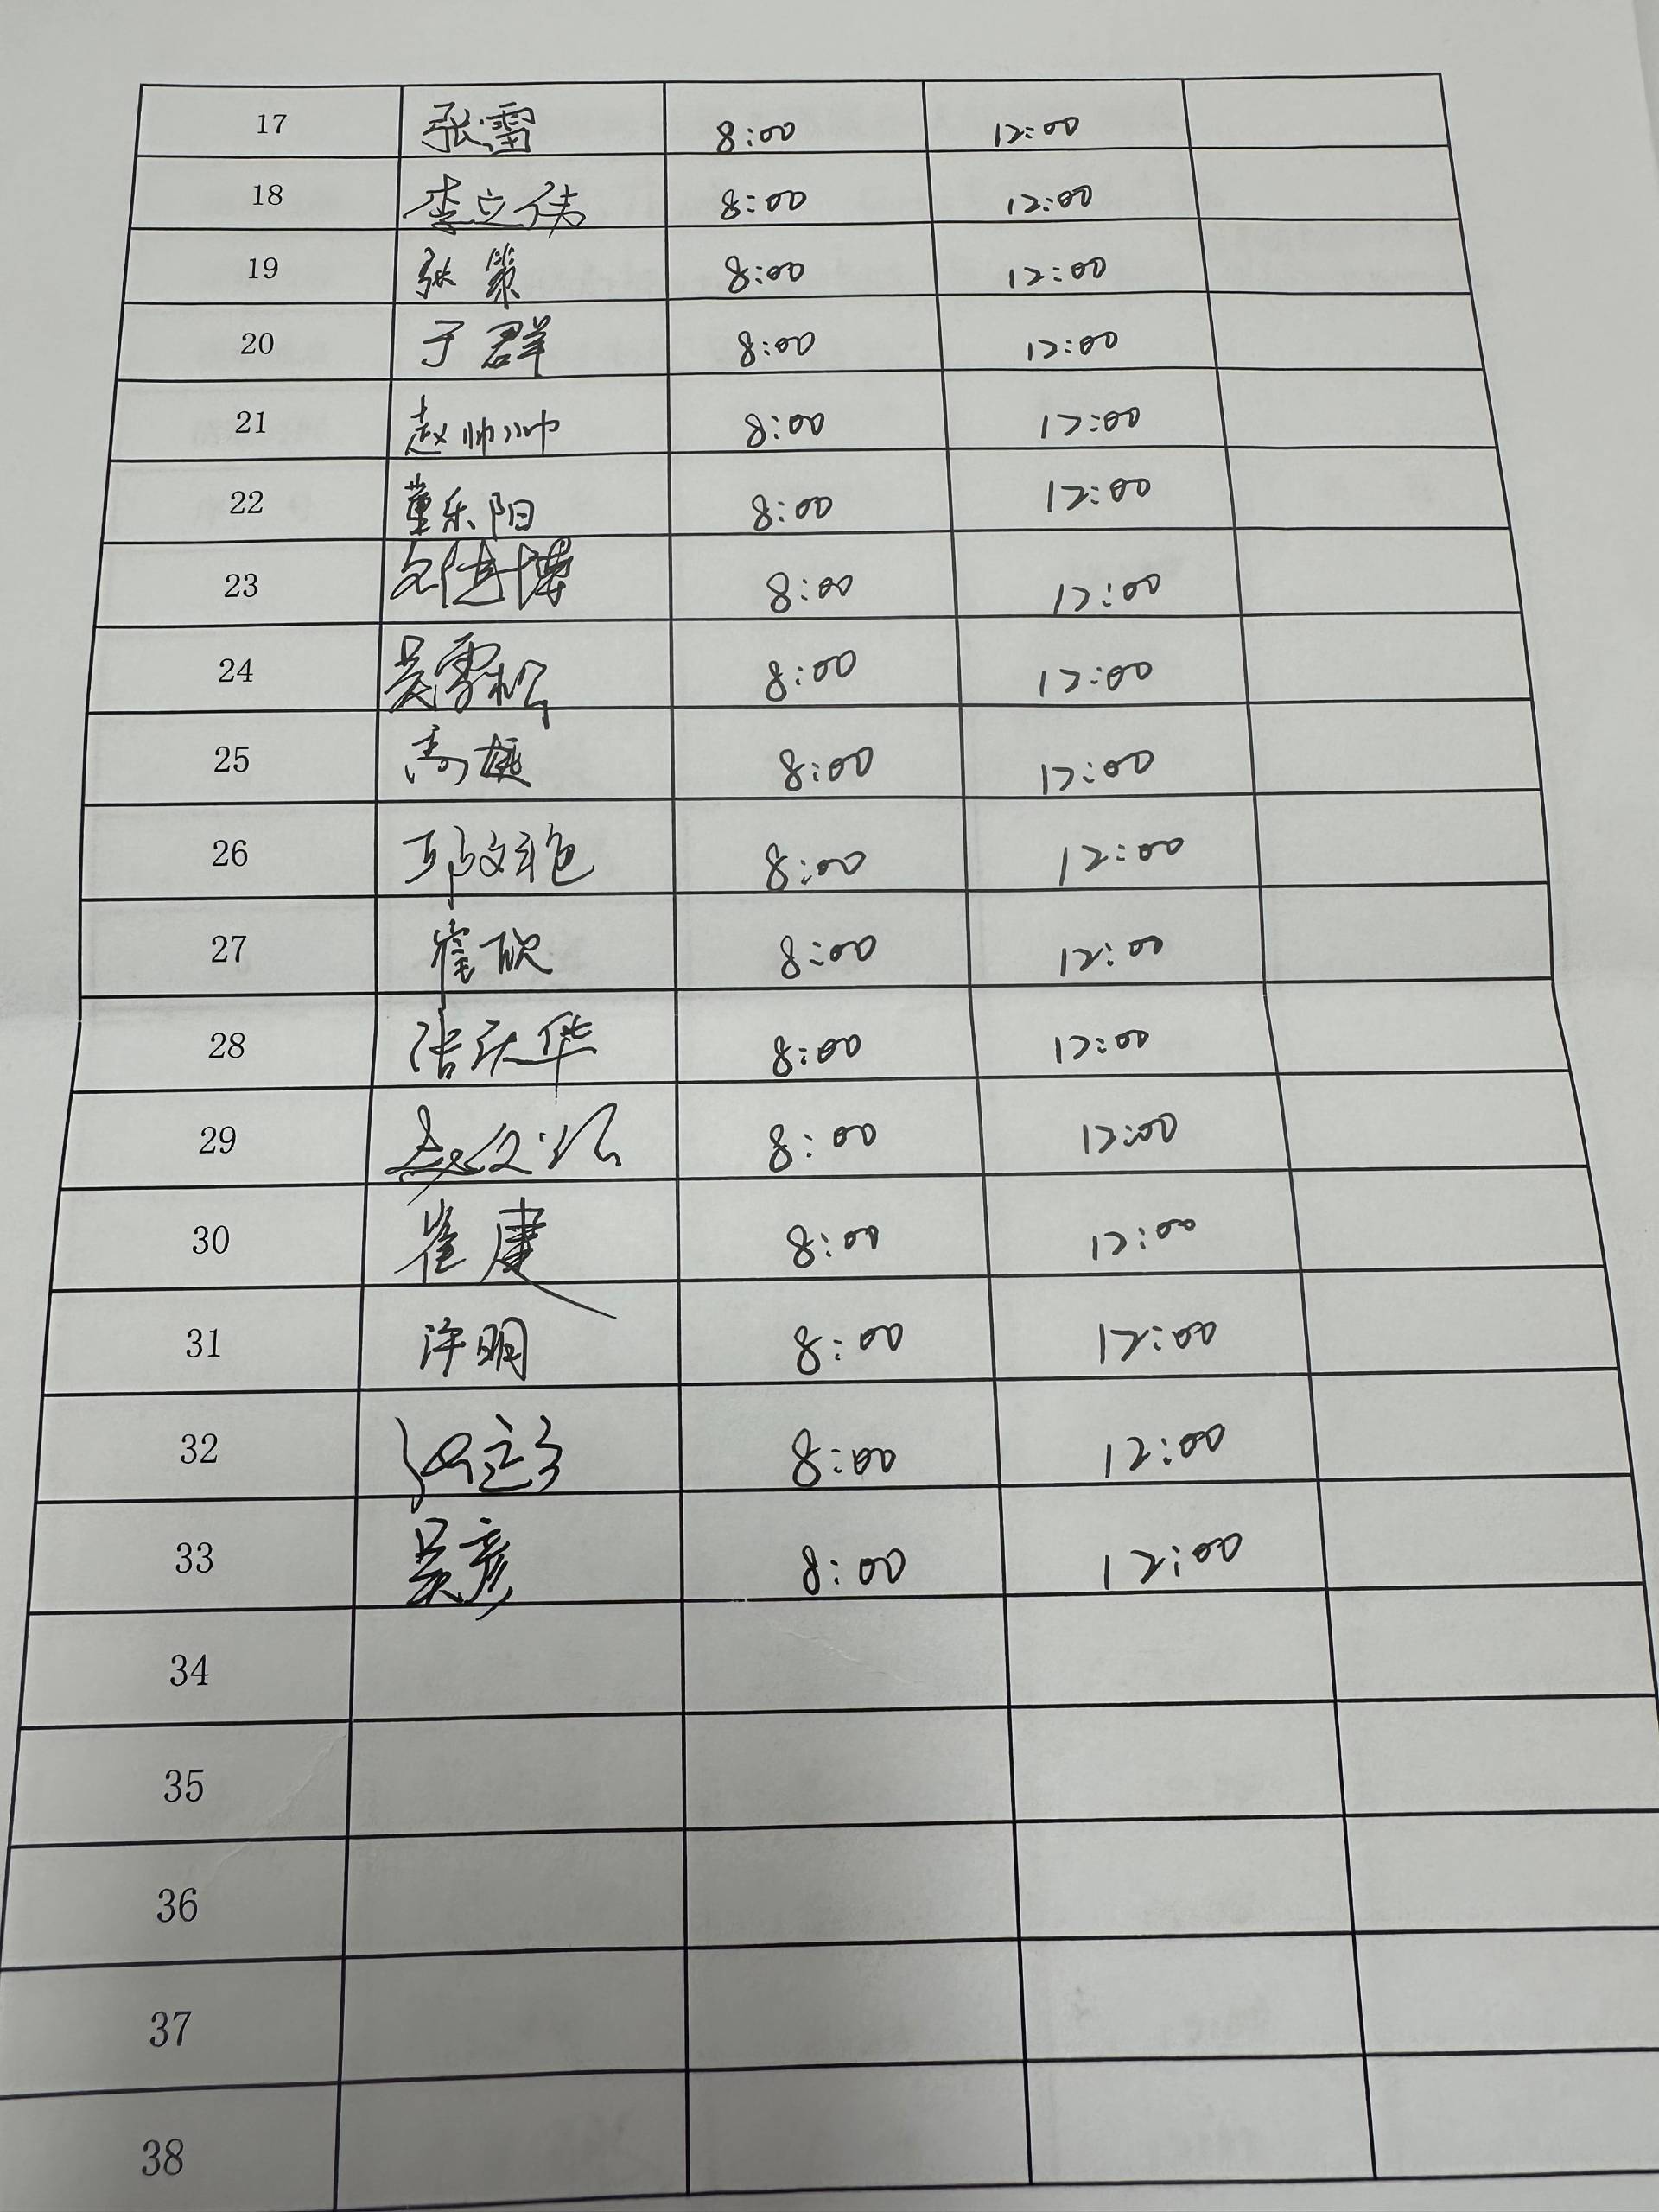 17 张雷 8:00 12:00
18 李立伟 8:00 12:00
19 张策 8:00 12:00
20 于群 8:00 12:00
21 赵帅帅 8:00 12:00
22 董乐阳 8:00 12:00
23 8:00 12:00
24 吴雪松 8:00 12:00
25 高 8:00 12:00
26 邱文艳 8:00 12:00
27 崔欣 8:00 12:00
28 张庆华 8:00 12:00
29 赵 8:00 12:00
30 崔康 8:00 12:00
31 许明 8:00 12:00
32 8:00 12:00
33 吴彦 8:00 12:00
34
35
36
37
38